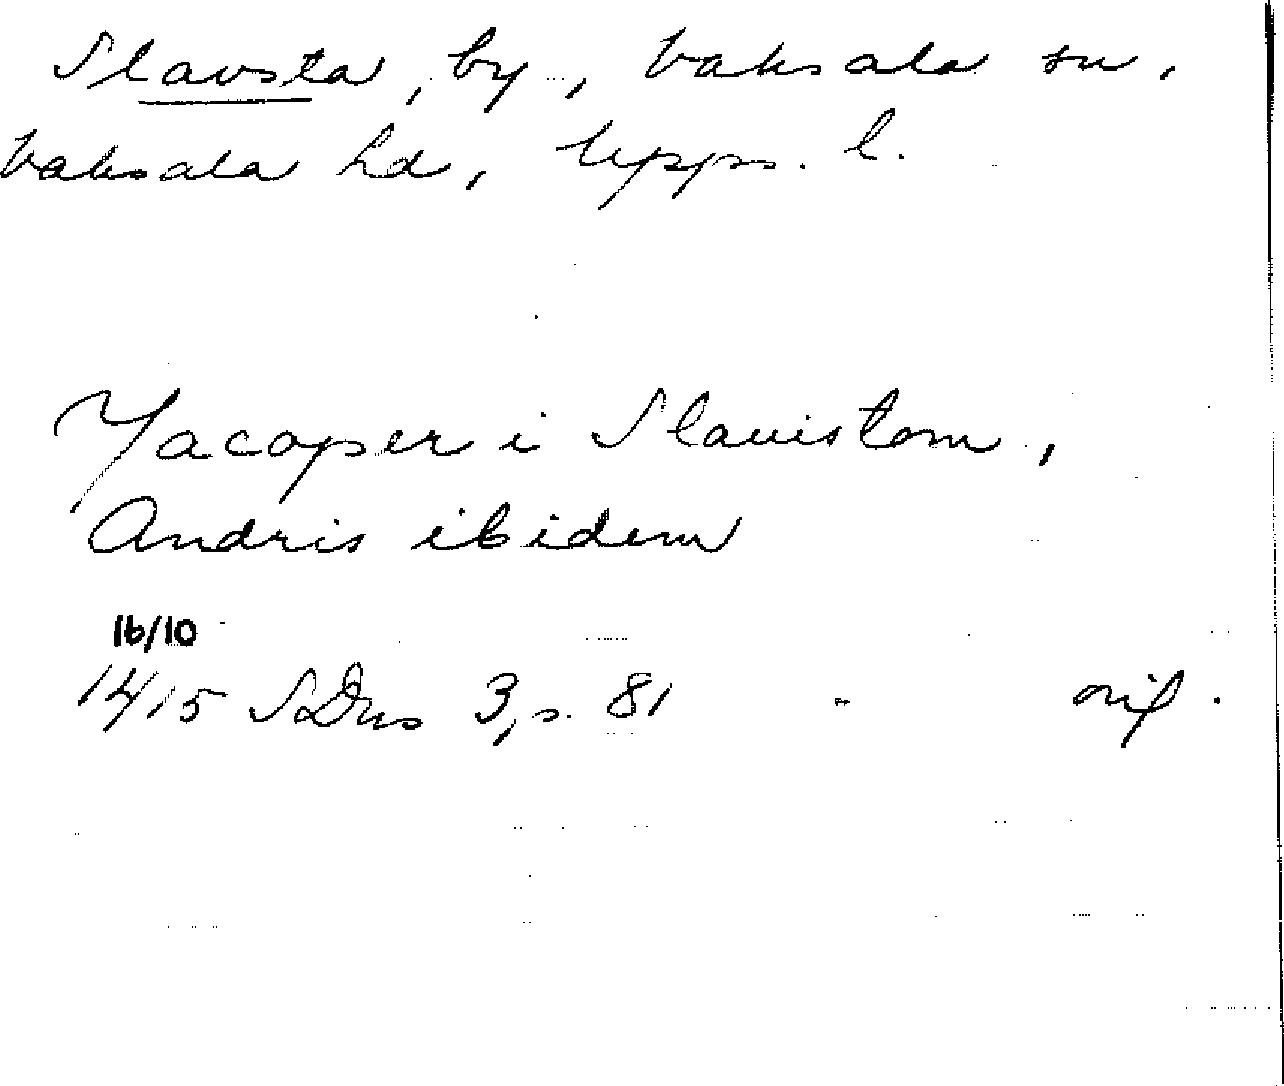 Slavsta, by, Vaksala sn,
Vaksala hd, Upps. l.
Jacoper i Slauistom,
Andris ibidem
16/10
1415 SDns 3, s. 81 - orig.